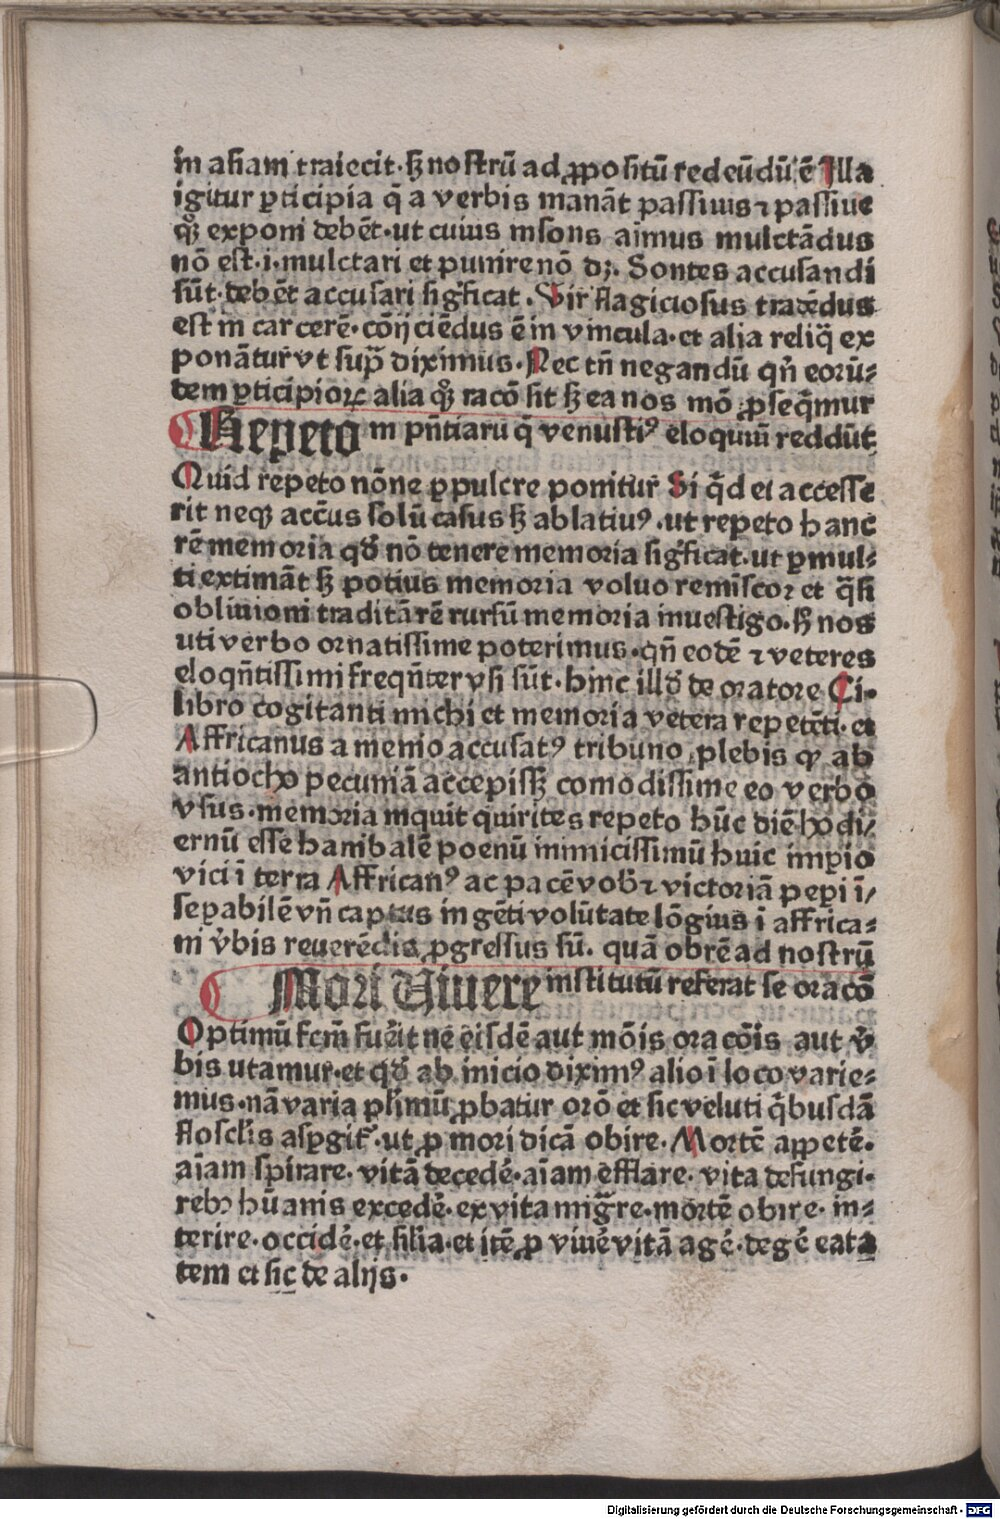 in asiam traiecit·sꝫ nostrū ad ꝓpositū redeūdū ē Illa
igitur ꝑticipia q̄ a verbis manāt passiuis ⁊ passiue
qꝫ exponi debēt·ut cuius insons aīmus mulctādus
nō est·i·mulctari et punire nō dꝫ. Sontes accusandi
sūt·debēt accusari sigͥficat. Vir flagiciosus tradēdus
est in carcerē·cōijciēdus ē in vincula·et alia reliq̄ ex
ponātur vt sup̄ diximus. Nec tn̄ negandū qn̄ eorū⸗
dem ꝑticipioꝝ alia qꝫ racō sit sꝫ ea nos mō ꝓseq̄mur
Repeto m pn̄tiaru q̄ venustiꝰ eloquiū reddūt
Quid repeto nōne ꝑpulcre ponitur Si q̄d ei accesse
rit neqꝫ acc̄us solū casus sꝫ ablatiuꝰ·ut repeto hanc
rē memoria qd̄ nō tenere memoria sigͥficat·ut ꝑmul⸗
ti extimāt sꝫ potius memoria voluo remīscor et q̄si
obliuioni traditā rē rursū memoria inuestigo·sꝫ nos
uti verbo ornatissime poterimus·qn̄ eodē ⁊ veteres
eloqn̄tissimi freqn̄ter vsi sūt·hinc illd̄ de oratore Ci·
libro cogitanti michi et memoria vetera repetēti·et
Affricanus a menio accusatꝰ tribuno plebis qꝫ ab
antiocho pecuniā accepissꝫ comodissime eo verbo
vsus·memoria inquit quirites repeto hūc diē hodi/
ernū esse hanibalē poenū inimicissimū huic imꝑio
vici ī terra Affricanꝰ ac pacē vob̄ ⁊ victoriā peꝑi ī/
seꝑabilē vn̄ captus ingēti volūtate lōgius ī affrica⸗
ni v̄bis reuerēdis ꝓgressus sū. quā obrē ad nostrū
Mori Uiuere institutū referat se oracō
Optimū fcm̄ fuerit ne eisdē aut mōis oracōis aut v̄
bis utamur·et qd̄ ab inicio diximꝰ alio ī loco varie⸗
mus·nā varia pl̄imū ꝓbatur orō et sic veluti q̄busdā
flosclīs asꝑgit᷑·ut ꝓ mori dicā obire. Mortē appetē.
aīam spirare. vitā decedē·aīam efflare. vita defungi·
rebꝫ hūanis excedē·ex vita migr̄e·mortē obire·in⸗
terire·occidē·et silīa·et itē ꝓ viuē vitā agē·degē eata
tem et sic de alijs.
Digitalisierung gefördert durch die Deutsche Forschungsgemeinschaft - DFG